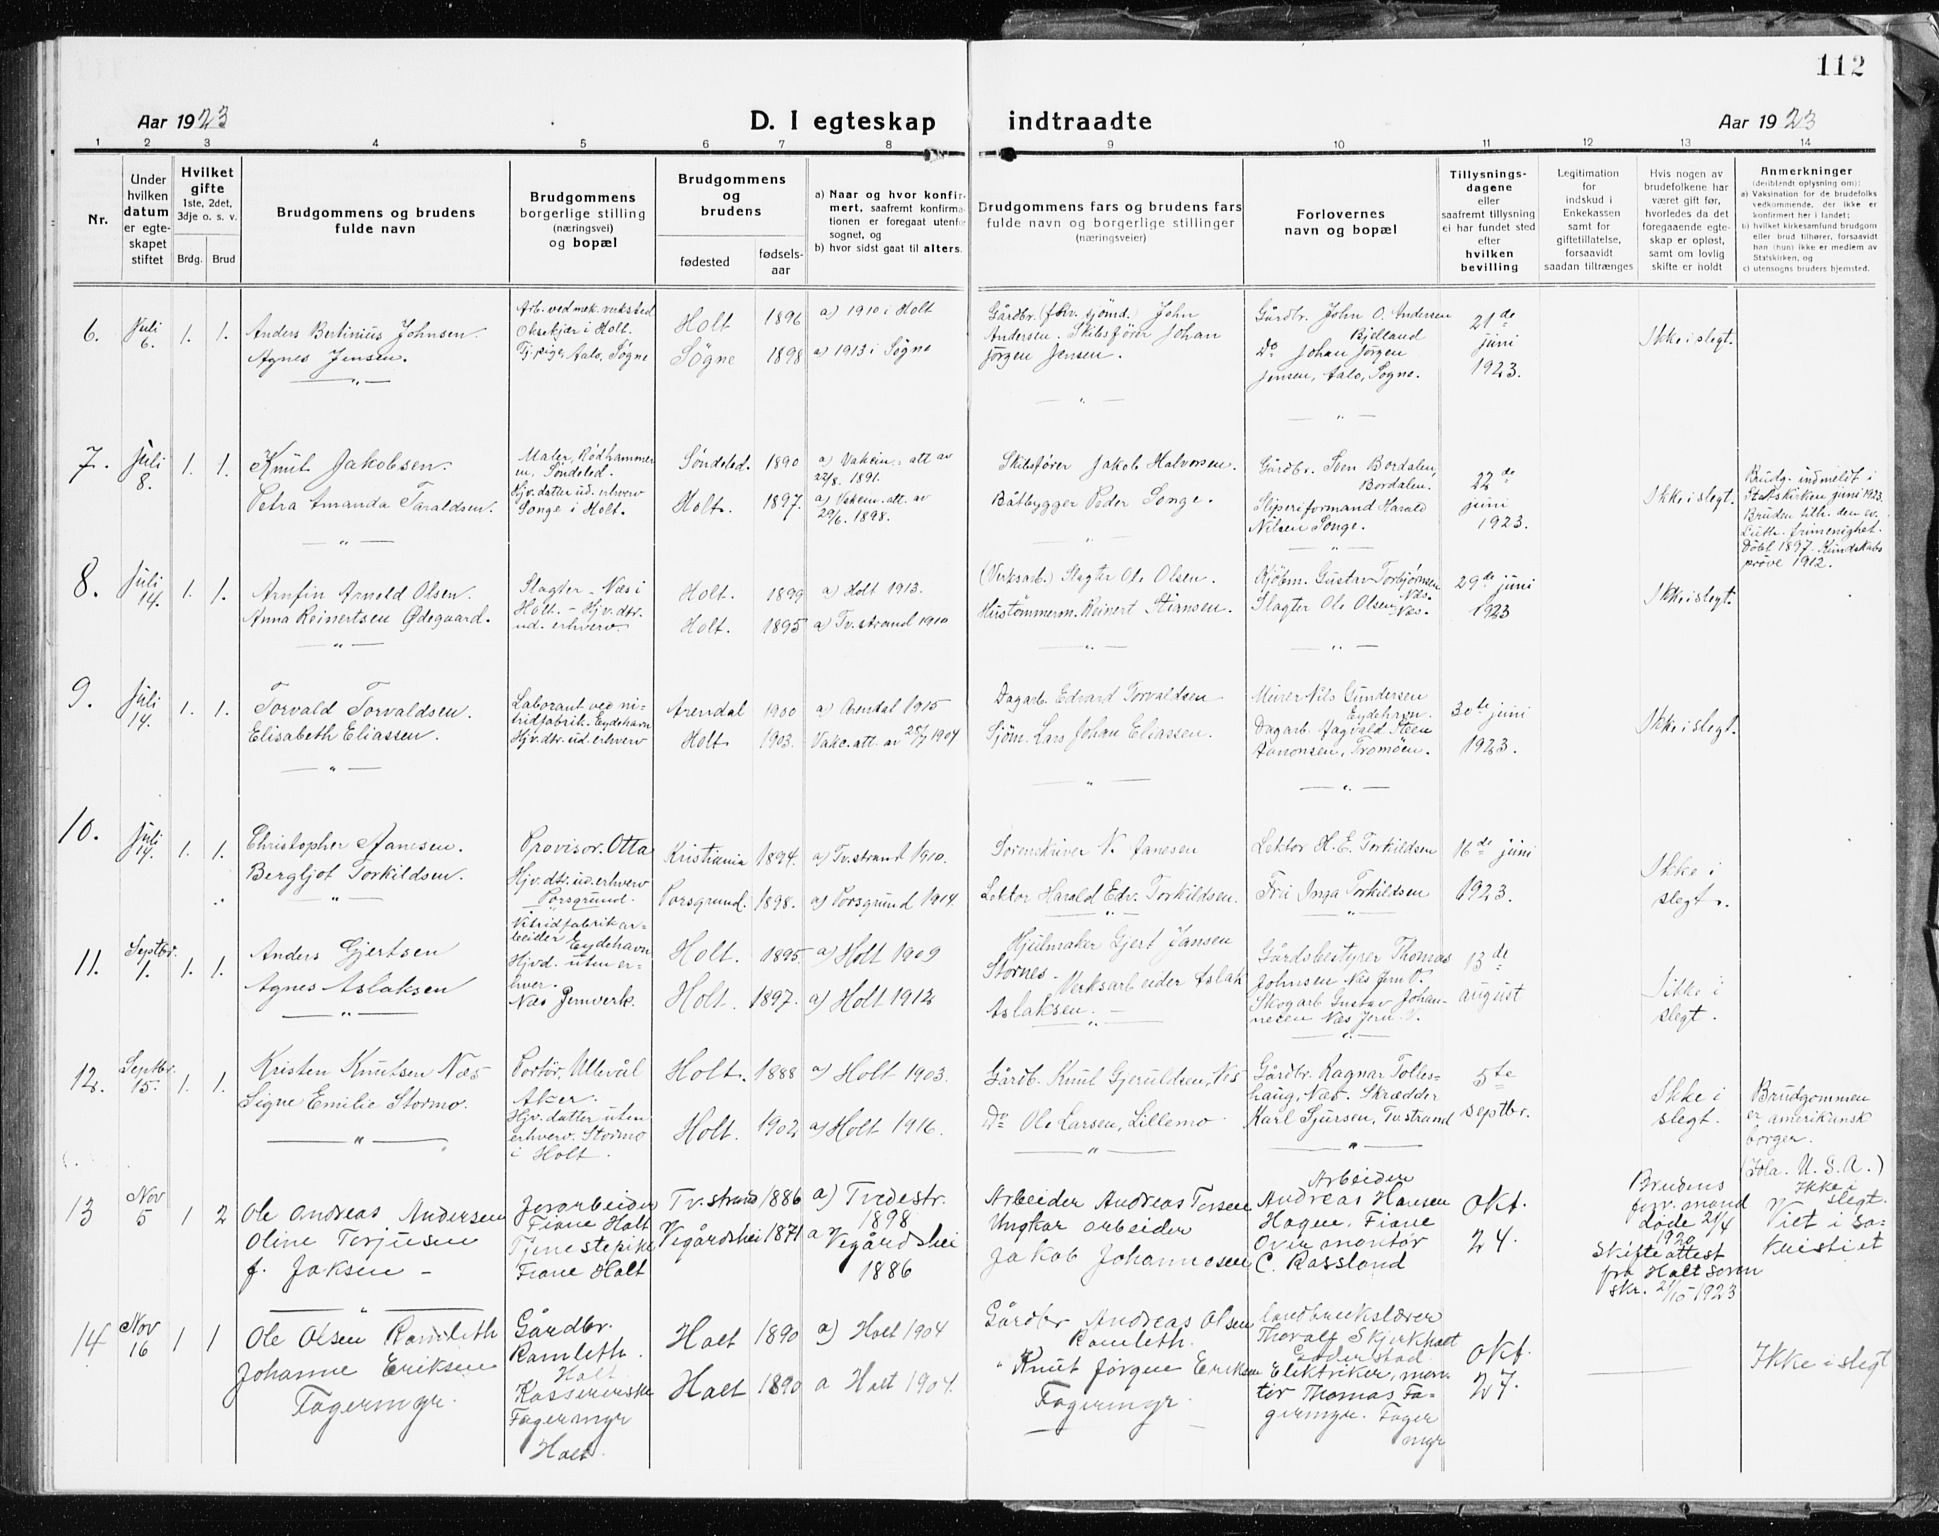 112
Aar 1923
D. I egteskap
indtraadte
Aar 1923
1 2 3 4 5 6 7 8 9 10 11 12 13 14
Nr.
Under
hvilken
datum
er egte-
skapet
stiftet
Hvilket
gifte
1ste, 2det,
3dje o. s. v.
Brdg. Brud
Brudgommens og brudens
fulde navn
Brudgommens
borgerlige stilling
(næringsvei)
og bopæl
Brudgommens
og
brudens
fødested
fødsels-
aar
a) Naar og hvor konfir-
mert, saafremt konfirma-
tionen er foregaat utenfor
sognet, og
b) hvor sidst gaat til alters.
Brudgommens fars og brudens fars
fulde navn og borgerlige stillinger
(næringsveier)
Forlovernes
navn og bopæl
Tillysnings-
dagene
eller
saafremt tillysning
ei har fundet sted
efter
hvilken
bevilling
Legitimation
for
indskud i
Enkekassen
samt for
giftetillatelse,
forsaavidt
saadan tiltrænges
Hvis nogen av
brudefolkene har
været gift før,
hvorledes da det
foregaaende egte-
skap er opløst,
samt om lovlig
skifte er holdt
Anmerkninger
(deriblendt oplysning om):
a) Vaksination for de brudefolks
vedkommende, der ikke er
konfirmert her i landet;
b) hvilket kirkesamfund brudgom
eller brud tilhører, forsaavidt
han (hun) ikke er medlem av
Statskirken, og
c) utensogns bruders hjemsted.
6. Juli
6. 1. 1.
Anders Bertinius Johnsen.
Agnes Jensen.
Arb. ved mek. verksted
Oksekjær i Holt.
Tj.pige, Aalo, Søgne
Holt 1896 a) 1910 i Holt
Søgne 1898 a) 1913 i Søgne
Gårdbr. (fhv. sjømd.) John
Andersen. Skibsfører Johan
Jørgen Jensen.
Gårdbr. John O. Andersen
Bjelland
Do Johan Jørgen
Jensen, Aalo, Søgne.
21de
juni
1923.
Ikke i slegt.
7. Juli
8. 1. 1.
Knut Jakobsen.
Petra Amanda Taraldsen.
Maler, Rødhammer
en, Søndeled.
Hjv. datter ud. erhverv
Songe i Holt.
Søndeled. 1890 a) Vakcin. att av
22/8. 1891.
Holt. 1897. a) Vakcin. att. av
29/6. 1898.
Skibsfører Jakob Halvorsen.
Båtbygger Peder Songe.
Gårdbr. Sven Bordalen,
Bordalen.
Sliperiformand Harald
Nilsen Songe.
22de
juni
1923.
Ikke i slegt.
Brudg. indmeldt i
Statskirken juni 1923.
Bruden tilh. den ev.
Luth. frimenighet.
Døbt 1897. Kundskabs
prøve 1912.
8. Juli
14. 1. 1.
Arnfin Arnold Olsen.
Anna Reinertsen Ødegaard.
Slagter - Næs i
Holt. - Hjv. dtr.
ud. erhverv.
Holt. 1899 a) Holt 1913.
Holt. 1895 a) Tv.strand 1910
(Verksarb.) Slagter Ole Olsen.
Hustømmerm. Reinert Stiansen.
Kjøbm. Gustav Torbjørnsen
Næs.
Slagter Ole Olsen Næs.
29de juni
1923
Ikke i slegt.
9. Juli
14. 1. 1.
Torvald Torvaldsen.
Elisabeth Eliassen.
Laborant ved ni-
tridfabrik. Eydehavn
Hjv. dtr. ud. erhverv
Arendal 1900 a) Arendal 1915
Holt 1903. Vakc. att. av 25/7 1904
Dagarb. Edvard Torvaldsen
Sjøm. Lars Johan Eliassen.
Murer Nils Gundersen
Eydehavn.
Dagarb. Aagvald Steen
Aanonsen, Tromøen.
30te juni
1923.
Ikke i slegt.
10. Juli
14. 1. 1.
Christopher Aanesen.
Bergljot Torkildsen.
Provisor. Otta
Hjv. dtr. ud. erhverv
Porsgrund.
Kristiania 1894. a) Tv.strand 1910.
Porsgrund. 1898. a) Porsgrund 1914.
Sorenskriver N. Aanesen
Lektor Harald Edv. Torkildsen.
Lektor H. E. Torkildsen
Fru Inga Torkildsen
16de juni
1923.
Ikke i
slegt.
11. Septbr.
1. 1. 1.
Anders Gjertsen
Agnes Aslaksen
Nitridfabrikar-
beider Eydehavn
Hjvd. uten er-
hver.
Næs Jernverk.
Holt. 1895. a) Holt 1909
Holt. 1897. a) Holt 1912
Hjulmaker Gjert Jansen
Stornes. Verksarbeider Aslak
Aslaksen.
Gårdsbestyrer Thomas
Johnsen Næs Jernv.
Skogarb Gustav Johan-
nesen Næs Jern. V.
13de
august
Ikke i
slegt.
12. Septbr.
15. 1. 1.
Kristen Knutsen Næs
Signe Emilie Stormo.
Portør, Ullevål
Aker.
Hjv. datter uten
erhverv. Stormo
i Holt.
Holt. 1888 a) Holt 1903.
Holt. 1902 a) Holt 1916.
Gårdb. Knut Gjeruldsen, Næs
Do Ole Larsen, Lillemo
Gårdbr. Ragnar Tolles-
haug, Næs. Skrædder
Karl Sjursen, Tv.strand
5te
septbr.
Ikke i
slegt.
Brudgommen
er amerikansk
borger.
(Iola. U. S. A.)
Ikke i
slegt.
13 Nov
5 1 2
Ole Andreas Andersen
Oline Terjusen
f. Jaksen -
Jorarbeider
Fiane Holt
Tjenestepike
Fiane Holt
Tv.strand 1886 a) Tvedestr.
1898
Vegårdshei 1871 a Vegårdshei
1886
Arbeider Andreas Tersen
Ungkar arbeider
Jakob Johannesen
Arbeider
Andreas Hansen
Hagen, Fiane
Overmontør
C. Rassland
Okt.
24.
Brudens
forr. mand
døde 21/4
1920
Skifteattest
fra Holt soren
skr. 21/10 1923
Viet i Sa-
kristiet
14 Nov
16 1 1
Ole Olsen Ramleth
Johanne Eriksen
Fagermyr.
Gårdbr.
Ramleth.
Holt
Kassererske
Fagermyr
Holt.
Holt 1890 a) Holt 1904
Holt 1890 a Holt 1904.
Gårdbr Andreas Olsen
Ramleth.
" Knut Jørgen Eriksen
Fagermyr.
landbrukslærer
Thoralf Skjerkholt
Gjderstad
Elektriker, mon-
tør Thomas Fa-
germyr. Fager
myr
Okt.
27.
Ikke i slegt